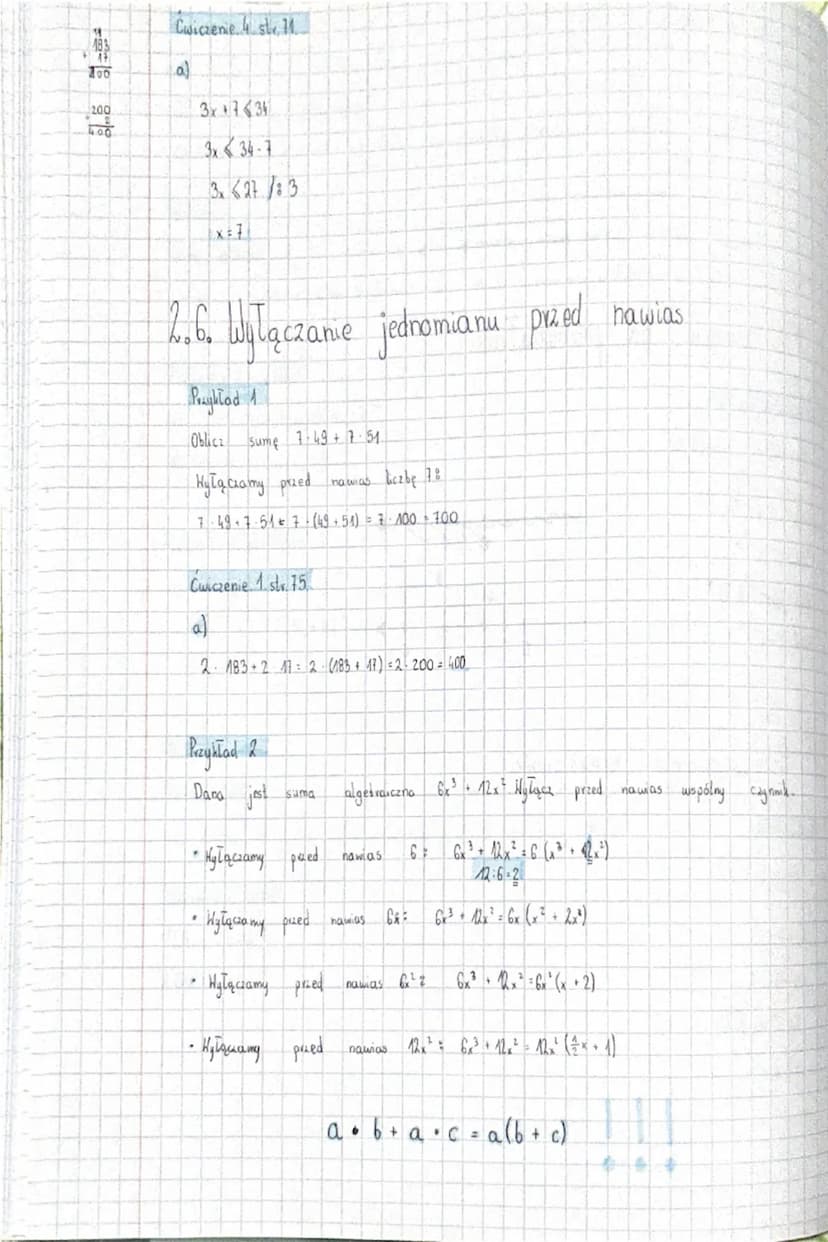 11
183
+ 17
200
200
· 2
400
Ćwiczenie 4 str. 71
a)
3x + 7 ⩽ 34
3x ⩽ 34 - 7
3x ⩽ 27 /: 3
x = 7
2.6. Wyłączanie jednomianu przed nawias
Przykład 1
Oblicz sumę 7 · 49 + 7 · 51
Wyłączamy przed nawias liczbę 7:
7 · 49 + 7 · 51 = 7 · (49 + 51) = 7 · 100 = 700
Ćwiczenie 1 str. 75
a)
2 · 183 + 2 · 17 = 2 · (183 + 17) = 2 · 200 = 400
Przykład 2
Dana jest suma algebraiczna 6x³ + 12x². Wyłącz przed nawias wspólny czynnik.
• Wyłączamy przed nawias 6: 6x³ + 12x² = 6 (x³ + 2x²)
12 : 6 = 2
• Wyłączamy przed nawias 6x: 6x³ + 12x² = 6x (x² + 2x)
• Wyłączamy przed nawias 6x²: 6x³ + 12x² = 6x² (x + 2)
• Wyłączamy przed nawias 12x²: 6x³ + 12x² = 12x² (½x + 1)
a • b + a • c = a(b + c) !!!